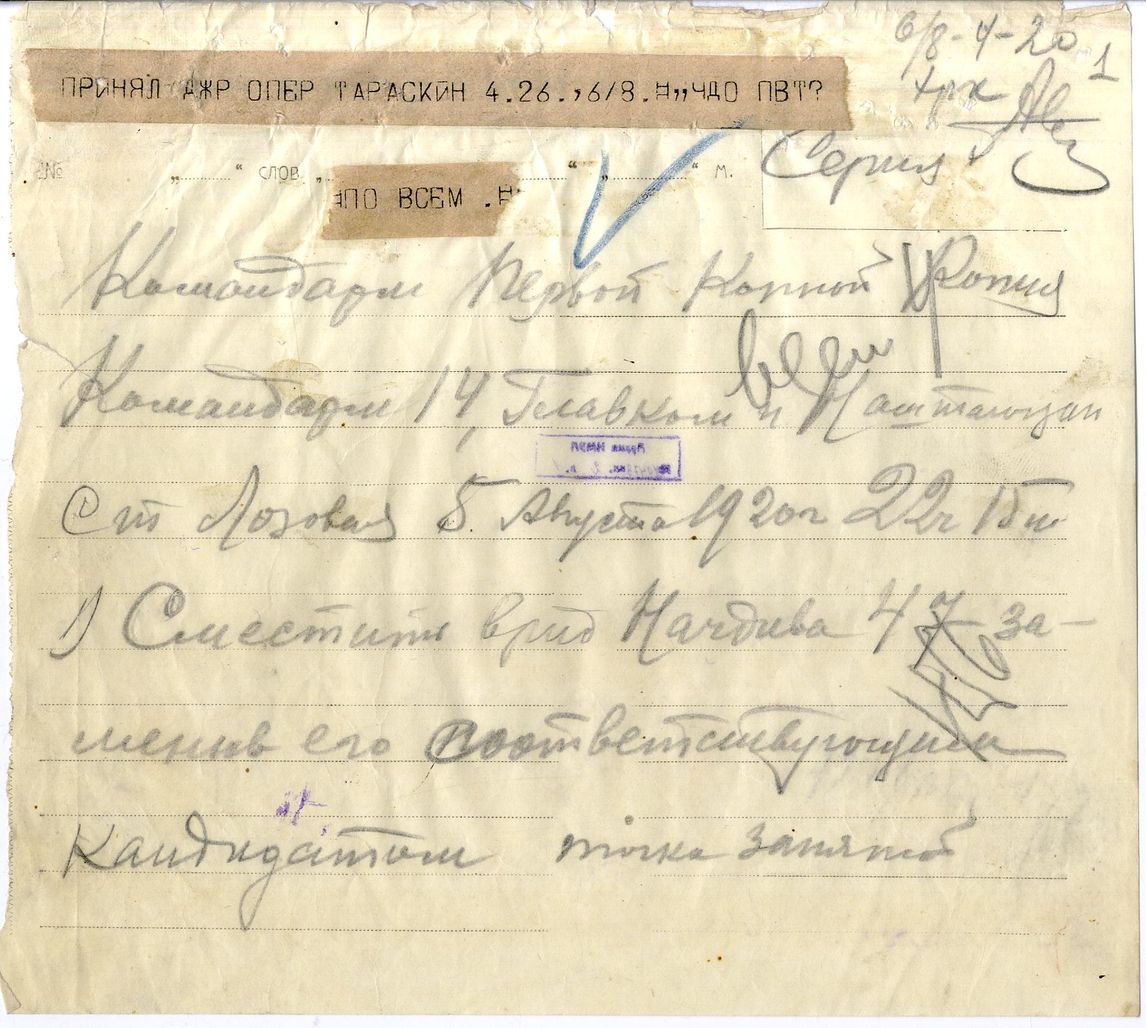 6/8-4-20 1
ПРИНЯЛ ДЖР ОПЕР ТАРАСКИН 4.26.,,6/8.Н,,ЧДО ПВТ?
Серия
№ „ “ слов „ “ „ “ м.
ПО ВСЕМ .Н
Командарм Первой Конной Копия
всем
Командарм 14, Главком и Наштаюзап
Ст Лозовая 5. Августа 1920г 22ч 15м
1) Сместить врид Начдива 47 за-
менив его соответствующим
кандидатом точка запятой